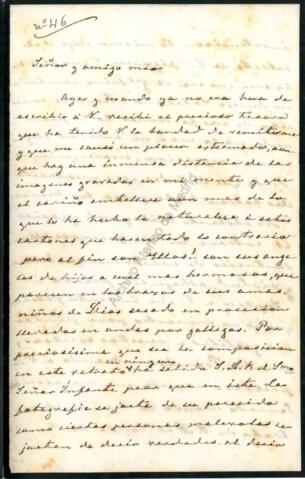 nº 46
Señor y amigo mio
Ayer y cuando ya no era hora de
escribir á V. recibí el precioso tesoro
que ha tenido V. la bondad de remitirme
y que me causó un placer estremado, aun
que hay una inmensa distancia de las
imagenes gravadas en mi mente y que
el cariño embellece aun mas de lo
que lo ha hecho la naturaleza á estos
cartones que hacen todo lo contrario
pero al fin son ellas! son sus ange
les de hijos á cual mas hermosos, que
parecen en los brazos de sus amas
niños de Dios sacado en procesion
llevados en andas por gallegas. Por
preciosisima que sea la composicion
en este retrato en ninguno ha salido S. A. R. el Smo
Señor Infante peor que en este. La
fotografia se jacta de su parecido
como ciertas personas malevolas se
jactan de decir verdades, el decir
Archivo Ateneo de Madrid